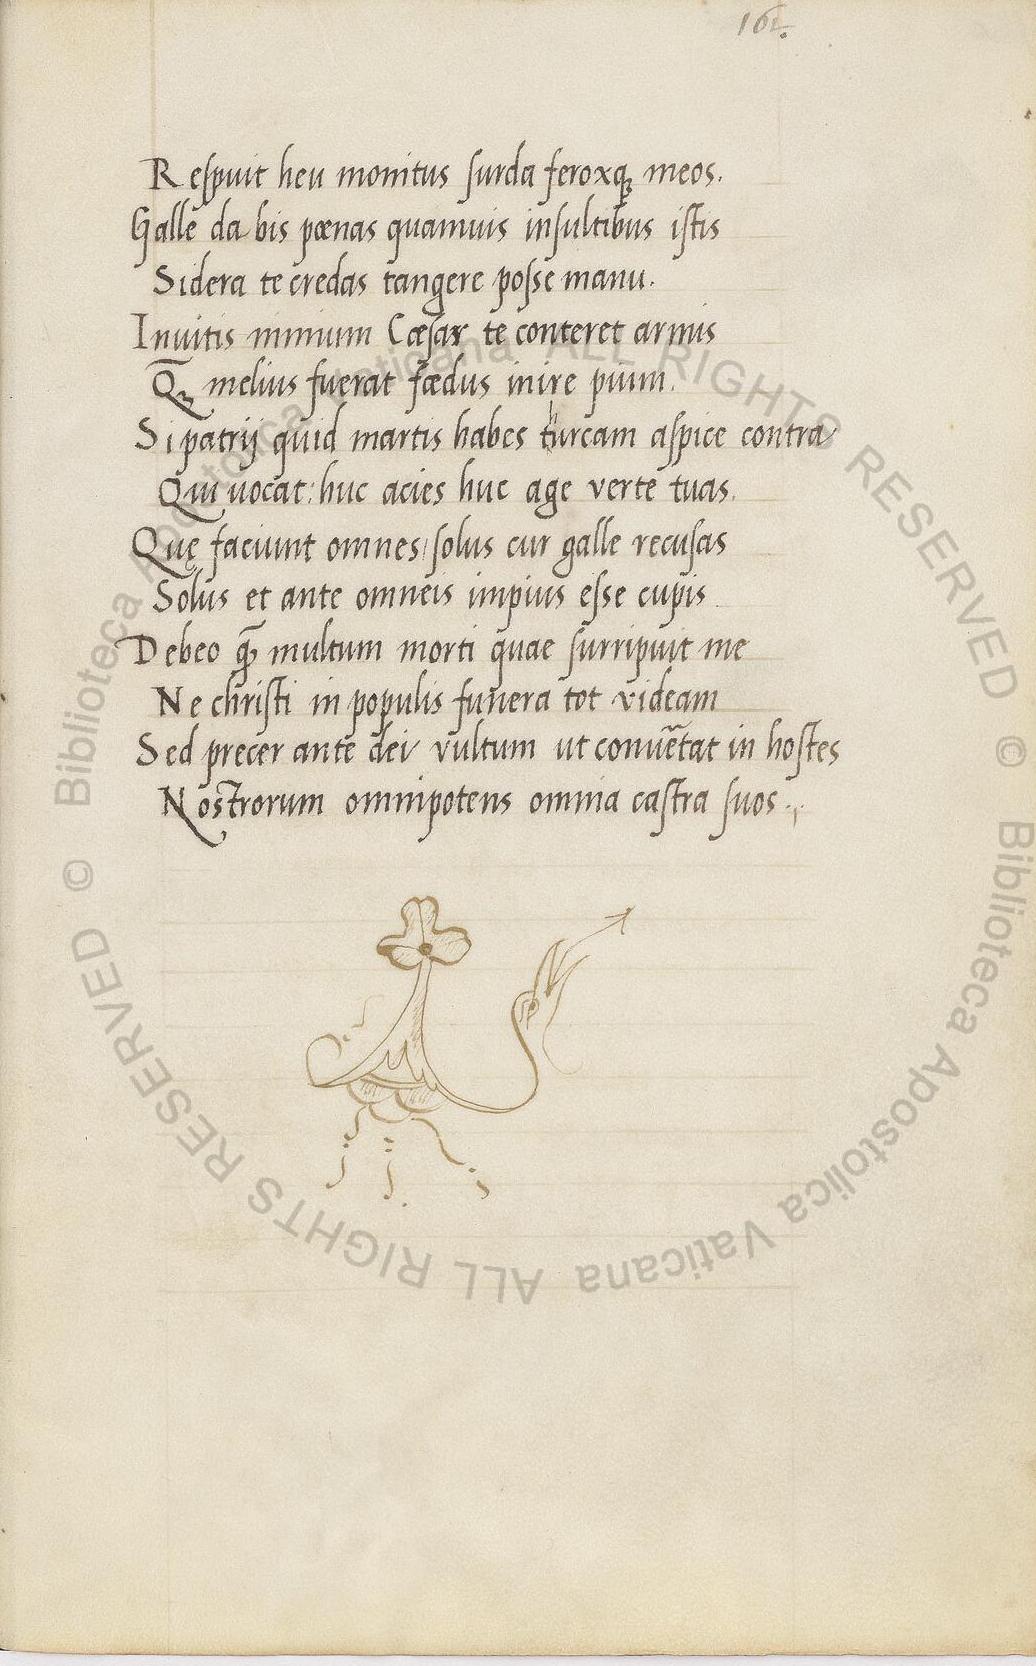 161.
Respuit heu monitus surda feroxq; meos.
Galle da bis pœnas quamuis insultibus istis
Sidera te credas tangere posse manu.
Inuitis nimium Cæsar te conteret armis
Q̄ȝ melius fuerat fœdus inire pium.
Si patrij quid martis habes turcam aspice contra
Qui uocat: huc acies huc age verte tuas.
Quę faciunt omnes, solus cur galle recusas
Solus et ante omneis impius esse cupis
Debeo q̄ȝ multum morti quae surripuit me
Ne christi in populis funera tot videam
Sed precer ante dei vultum ut conuētat in hostes
Nostrorum omnipotens omnia castra suos.
© Biblioteca Apostolica Vaticana ALL RIGHTS RESERVED
© Biblioteca Apostolica Vaticana ALL RIGHTS RESERVED